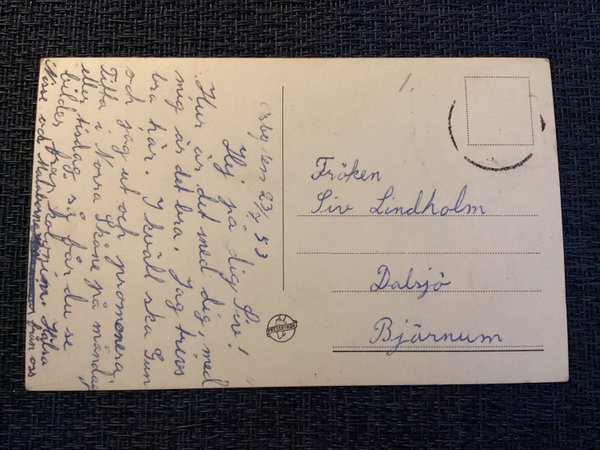 den 23/7 53
Hej på dig Siv!
Hur är det med dig, med
mig är det bra. Jag trivs
bra här. I kväll ska Gun
och jag ut och promenera.
Titta i Norra Skåne på måndag
eller tisdag så får du se
bilder från kolonien. Hälsa
från oss
1.
Fröken
Siv Lindholm
Dalsjö
Bjärnum